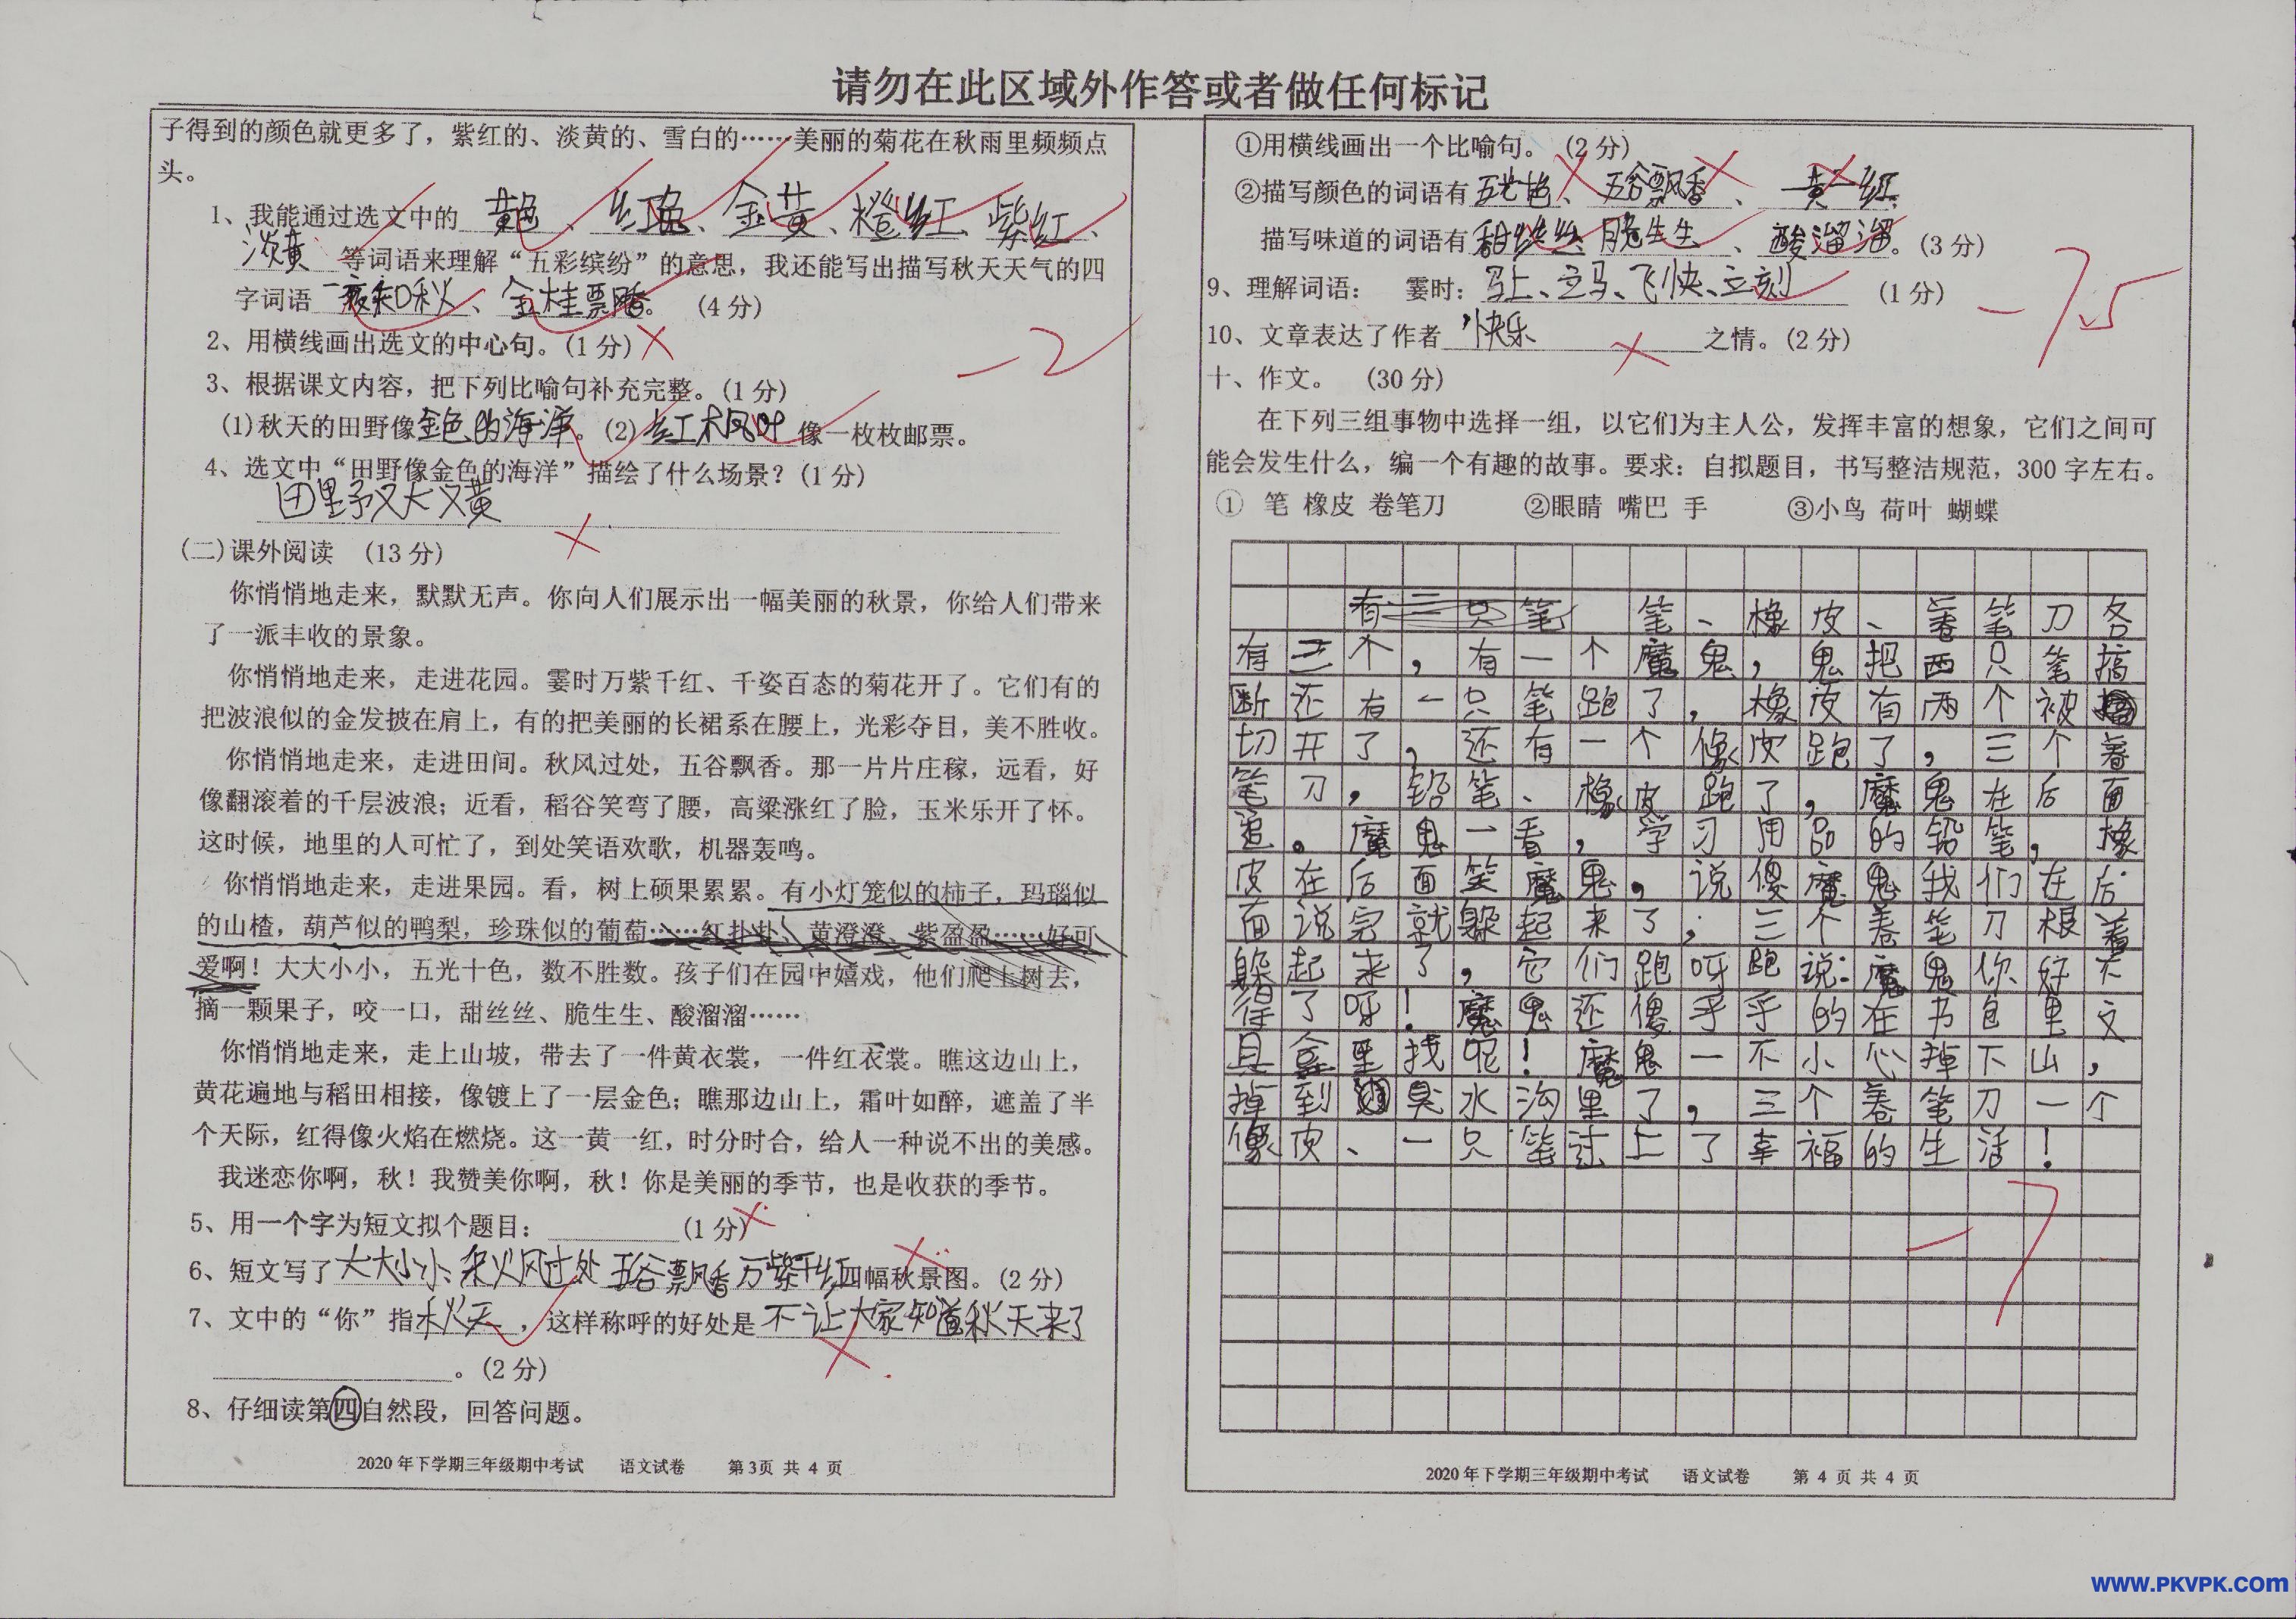 请勿在此区域外作答或者做任何标记
子得到的颜色就更多了，紫红的、淡黄的、雪白的……美丽的菊花在秋雨里频频点
头。
1、我能通过选文中的 黄色、红色、金黄、橙红、紫红、
淡黄 等词语来理解“五彩缤纷”的意思，我还能写出描写秋天天气的四
字词语 一夜知秋、金桂飘香。 (4 分)
2、用横线画出选文的中心句。(1 分)
-2
3、根据课文内容，把下列比喻句补充完整。(1 分)
(1)秋天的田野像金色的海洋。(2)红枫叶像一枚枚邮票。
4、选文中“田野像金色的海洋”描绘了什么场景？(1 分)
田野又大又黄
(二)课外阅读 (13 分)
你悄悄地走来，默默无声。你向人们展示出一幅美丽的秋景，你给人们带来
了一派丰收的景象。
你悄悄地走来，走进花园。霎时万紫千红、千姿百态的菊花开了。它们有的
把波浪似的金发披在肩上，有的把美丽的长裙系在腰上，光彩夺目，美不胜收。
你悄悄地走来，走进田间。秋风过处，五谷飘香。那一片片庄稼，远看，好
像翻滚着的千层波浪；近看，稻谷笑弯了腰，高粱涨红了脸，玉米乐开了怀。
这时候，地里的人可忙了，到处笑语欢歌，机器轰鸣。
你悄悄地走来，走进果园。看，树上硕果累累。有小灯笼似的柿子，玛瑙似
的山楂，葫芦似的鸭梨，珍珠似的葡萄……红扑扑、黄澄澄、紫盈盈……好可
爱啊！大大小小，五光十色，数不胜数。孩子们在园中嬉戏，他们爬上树去，
摘一颗果子，咬一口，甜丝丝、脆生生、酸溜溜……
你悄悄地走来，走上山坡，带去了一件黄衣裳，一件红衣裳。瞧这边山上，
黄花遍地与稻田相接，像镀上了一层金色；瞧那边山上，霜叶如醉，遮盖了半
个天际，红得像火焰在燃烧。这一黄一红，时分时合，给人一种说不出的美感。
我迷恋你啊，秋！我赞美你啊，秋！你是美丽的季节，也是收获的季节。
5、用一个字为短文拟个题目： (1 分)
6、短文写了大大小小、秋风过处 五谷飘香 万紫千红四幅秋景图。(2 分)
7、文中的“你”指秋天，这样称呼的好处是不让大家知道秋天来了
。(2 分)
8、仔细读第四自然段，回答问题。
2020 年下学期三年级期中考试 语文试卷 第 3页 共 4 页
①用横线画出一个比喻句。 (2 分)
②描写颜色的词语有五光十色、五谷飘香、黄一红。
描写味道的词语有甜丝丝、脆生生、酸溜溜。(3 分)
9、理解词语： 霎时：马上、立马、飞快、立刻 (1 分)
-7.5
10、文章表达了作者 快乐 之情。(2 分)
十、作文。 (30 分)
在下列三组事物中选择一组，以它们为主人公，发挥丰富的想象，它们之间可
能会发生什么，编一个有趣的故事。要求：自拟题目，书写整洁规范，300 字左右。
① 笔 橡皮 卷笔刀 ②眼睛 嘴巴 手 ③小鸟 荷叶 蝴蝶
有三只笔 笔、橡皮、卷笔刀各
有三个，有一个魔鬼，鬼把两只笔搞
断还有一只笔跑了，橡皮有两个被
切开了，还有一个像皮跑了，三个卷
笔刀，铅笔、橡皮跑了，魔鬼在后面
追。魔鬼一看，学习用品的铅笔，橡
皮在后面笑魔鬼，说傻魔鬼我们在后
面说完就躲起来了，三个卷笔刀根着
躲起来了，它们跑呀跑说：魔鬼你好不
得了呀！魔鬼还傻乎乎的在书包里文
具盒里找呢！魔鬼一不小心掉下山，
掉到臭水沟里了，三个卷笔刀一个
像皮、一只笔过上了幸福的生活！
-7
2020 年下学期三年级期中考试 语文试卷 第 4 页 共 4 页
www.PKVPK.com